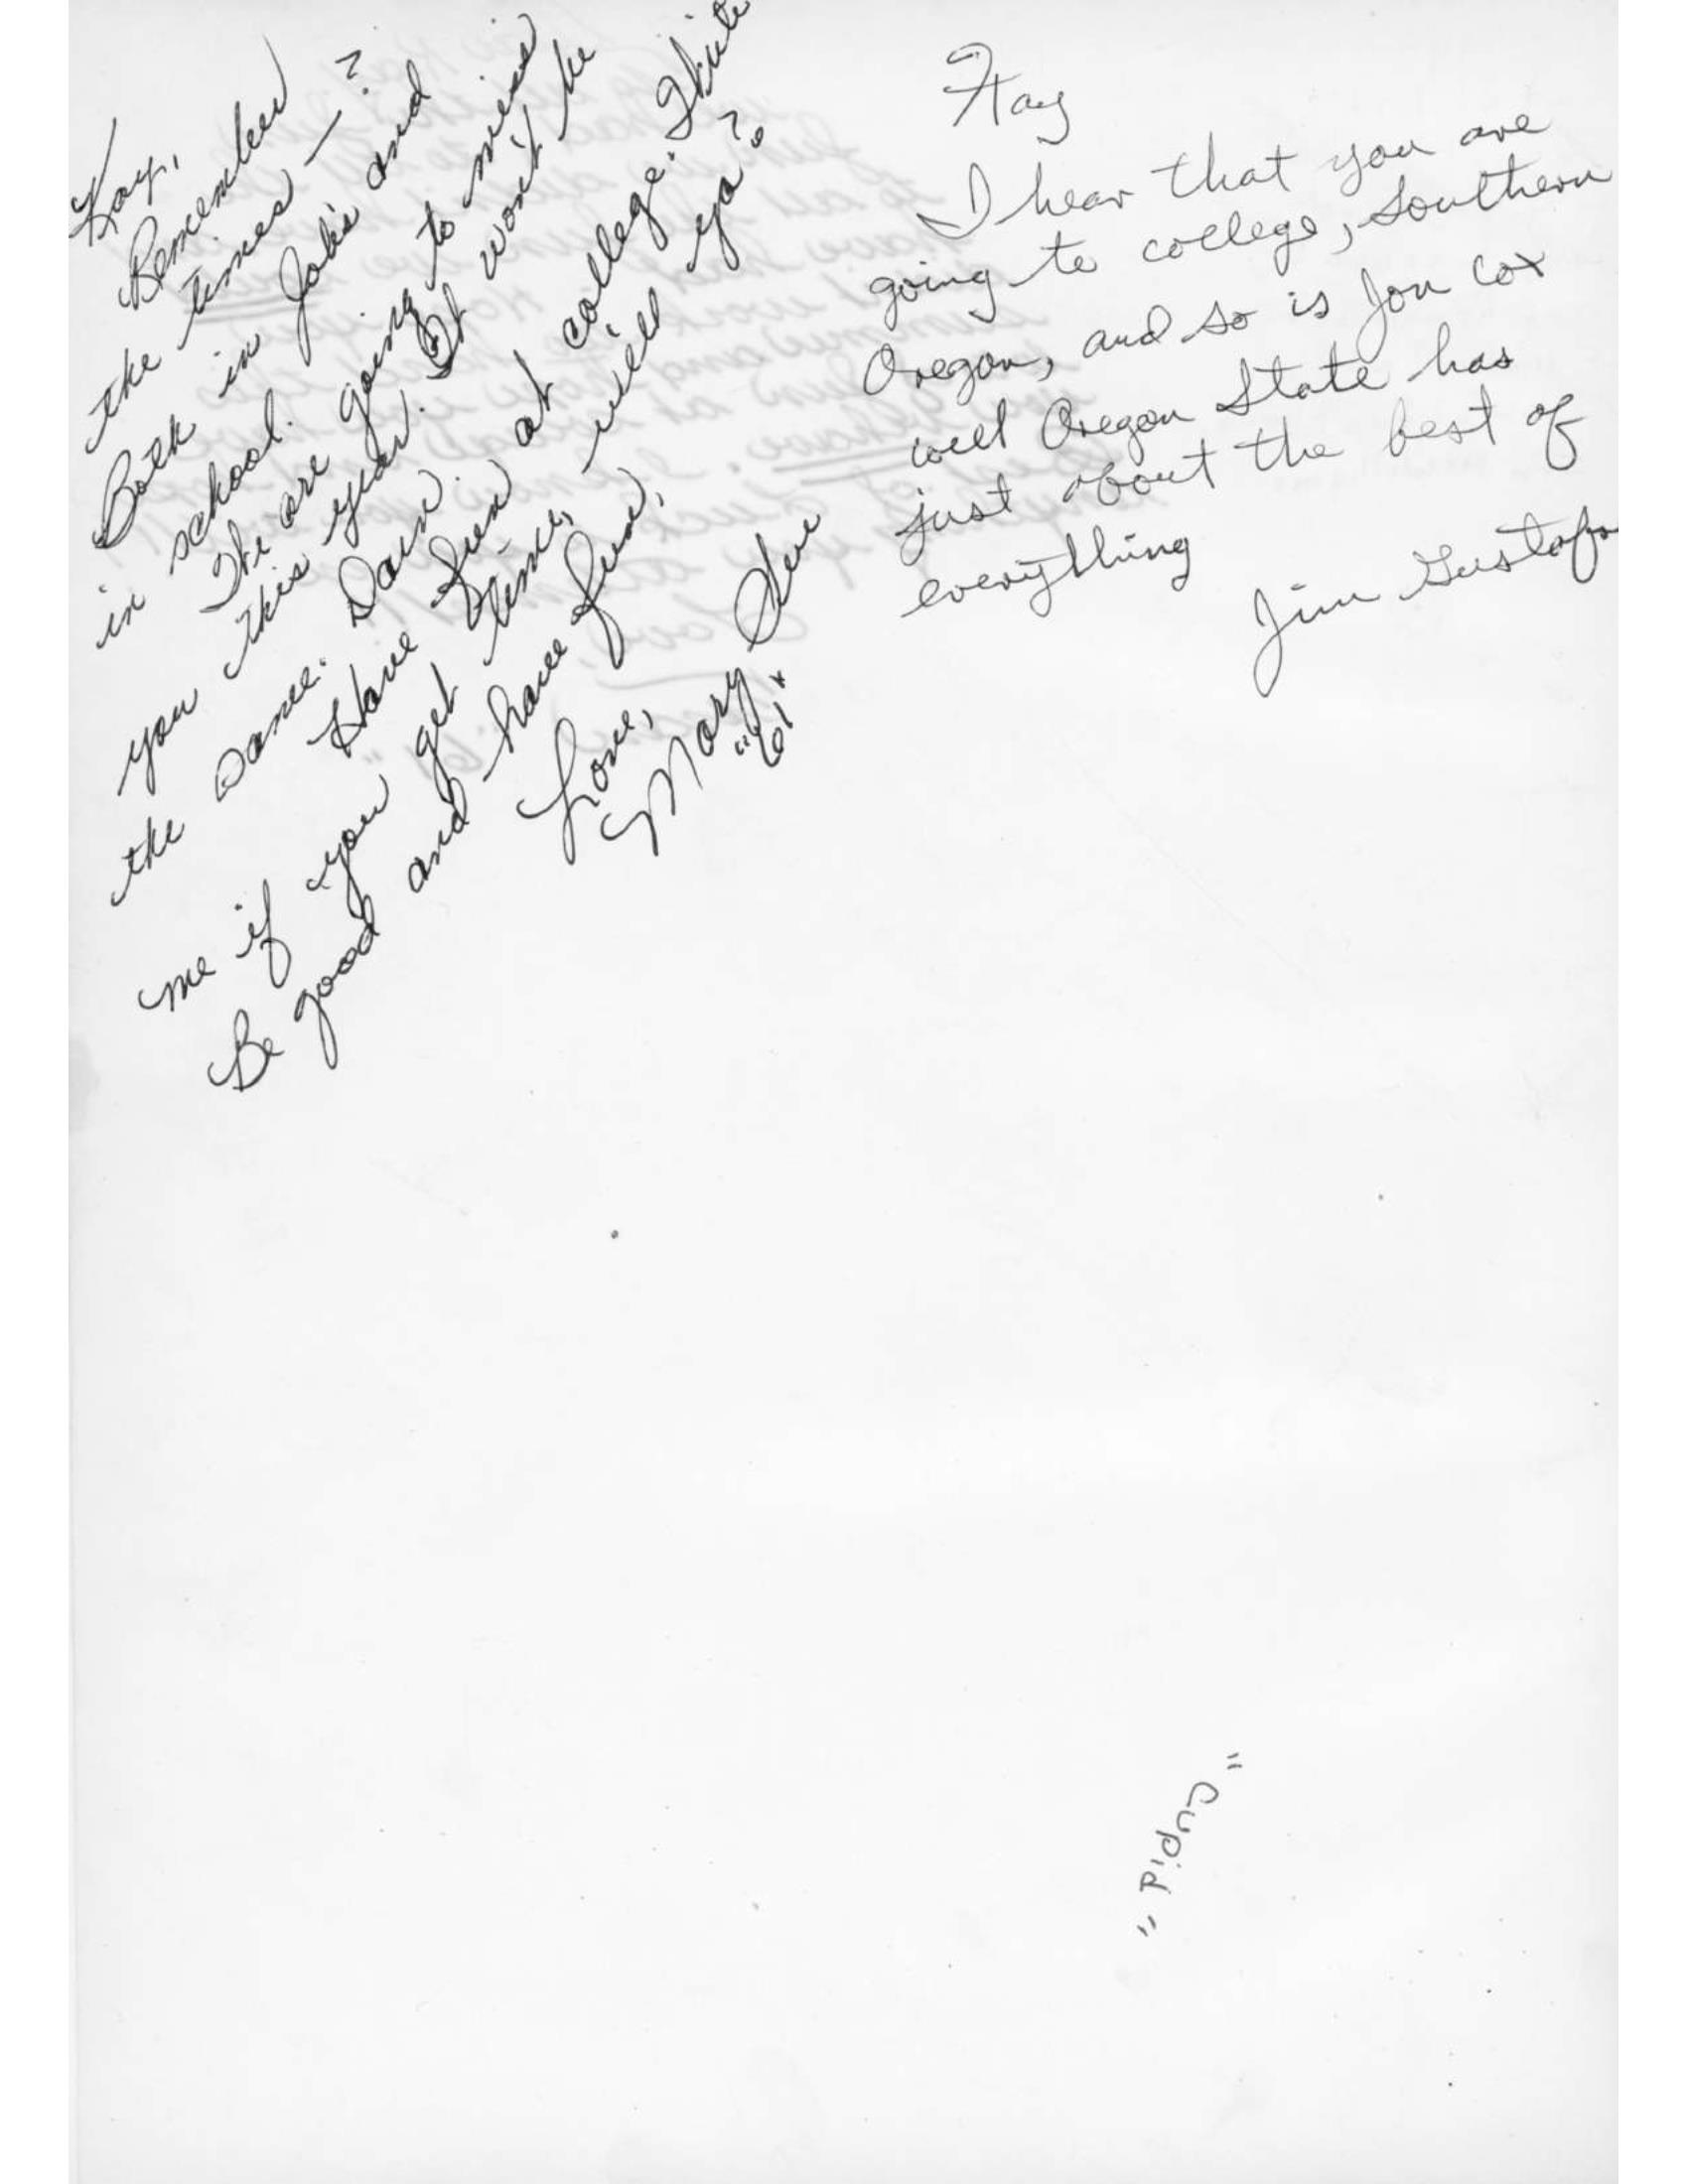 Kay,
Remember
the times — ?
Both in Job's and
in school.
The are going to miss
you this year. It won't be
the same. Darn.
Have fun at college. Write
me if you get time, will ya?
Be good and have fun,
Love,
Mary Sue
"61"
Kay
I hear that you are
going to college, Southern
Oregon, and so is Jon Cox
well Oregon State has
just about the best of
everything
Jim Gustafso
"Cupid"